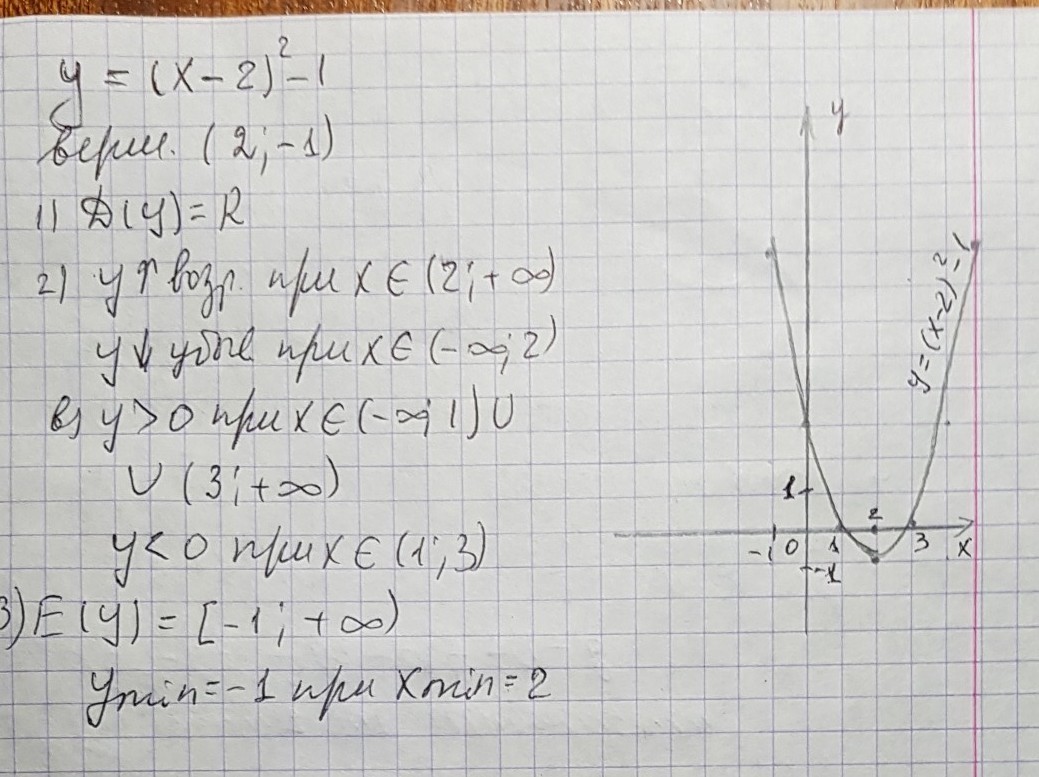 y = (x-2)²-1
верш. (2;-1)
1) D(y)=R
2) y↑ возр. при x∈(2;+∞)
y↓ убыв при x∈(-∞;2)
в) y>0 при x∈(-∞;1)∪
∪(3;+∞)
y<0 при x∈(1;3)
3) E(y)=[-1;+∞)
ymin=-1 при xmin=2
y
y=(x-2)²-1
1
2
-1 0 1 3 x
-1